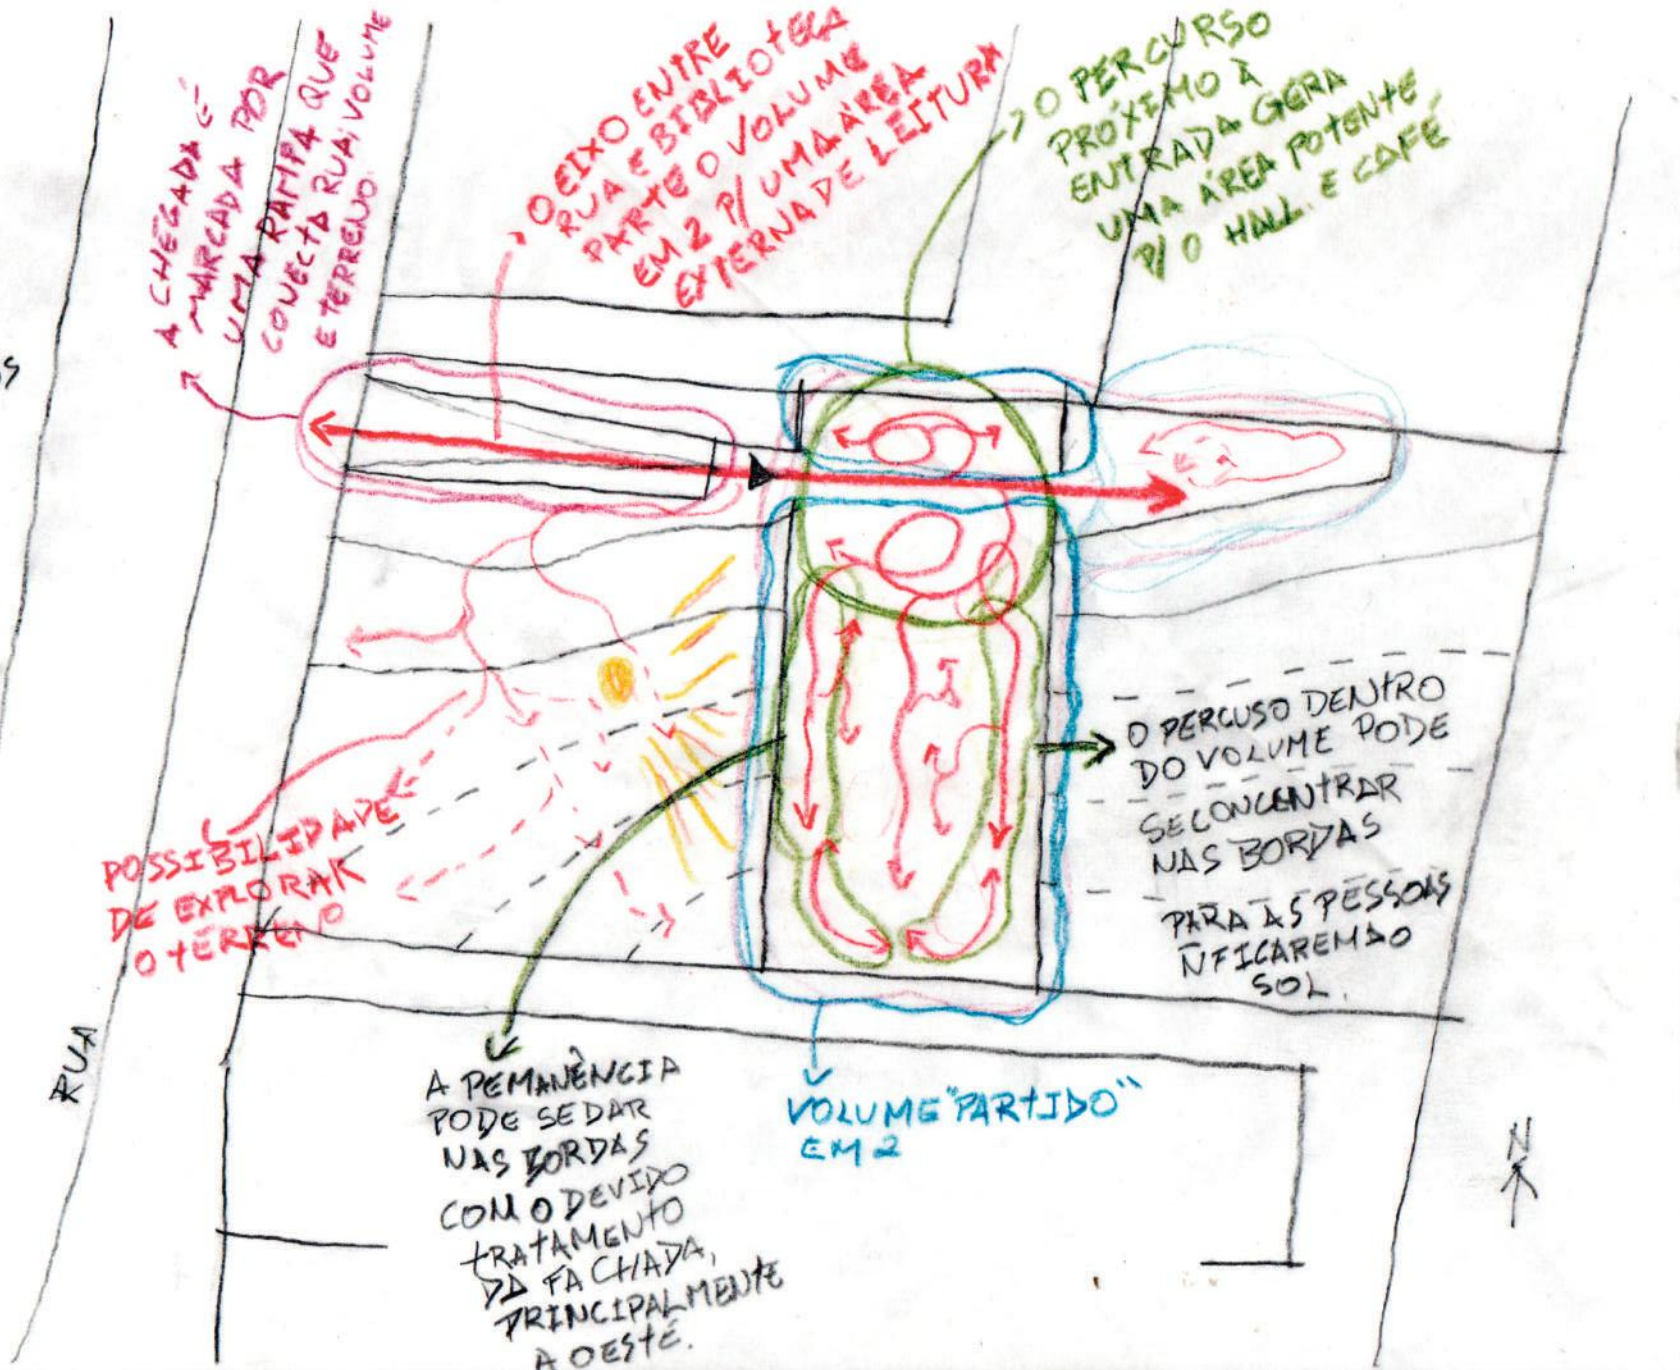 A CHEGADA É
MARCADA POR
UMA RAMPA QUE
CONECTA RUA, VOLUME
E TERRENO.
O EIXO ENTRE
RUA E BIBLIOTECA
PARTE O VOLUME
EM 2 P/ UMA ÁREA
EXTERNA DE LEITURA
O PERCURSO
PRÓXIMO À
ENTRADA GERA
UMA ÁREA POTENTE
P/ O HALL E CAFÉ
O PERCUSO DENTRO
DO VOLUME PODE
SE CONCENTRAR
NAS BORDAS
PARA AS PESSOAS
Ñ FICAREM AO
SOL.
POSSIBILIDADE
DE EXPLORAR
O TERRENO
RUA
A PEMANÊNCIA
PODE SE DAR
NAS BORDAS
COM O DEVIDO
TRATAMENTO
DA FACHADA,
PRINCIPALMENTE
A OESTE.
VOLUME "PARTIDO"
EM 2
N